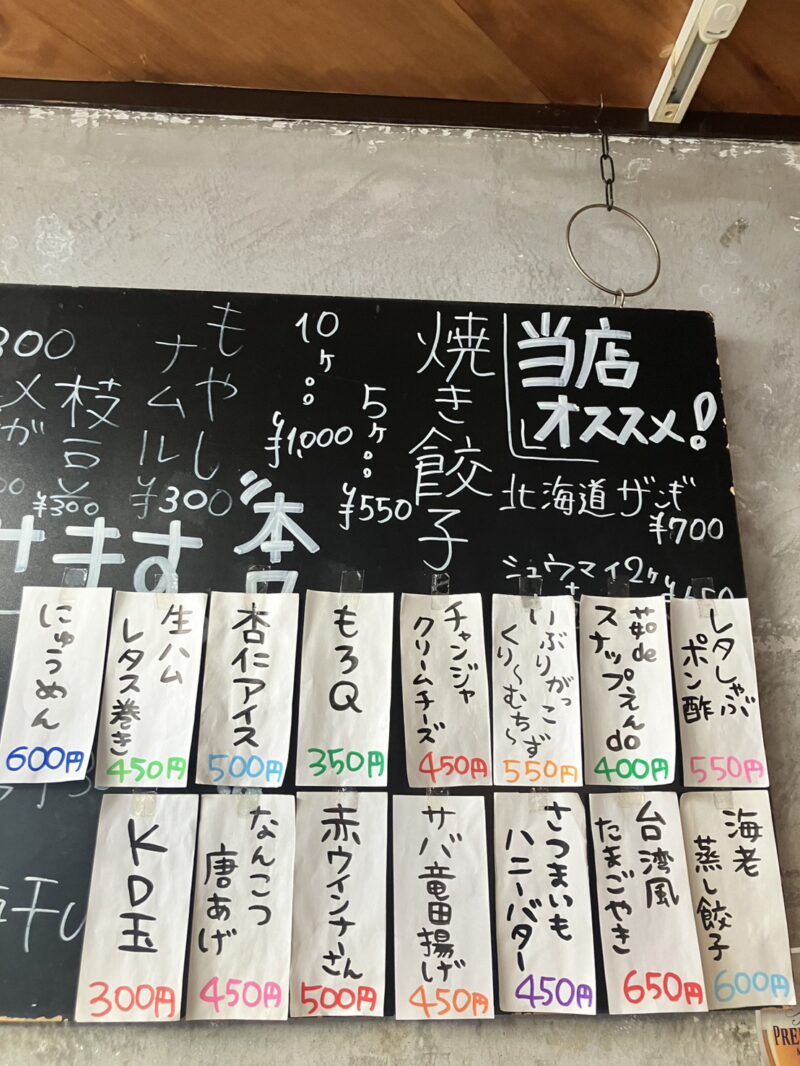 当店
オススメ!
北海道ザンギ
¥700
シュウマイ2ヶ
焼き餃子
5ヶ。。¥550
10ヶ。。¥1,000
もやし
ナムル
¥300
枝豆
¥300
300
本
ます
レタしゃぶ
ポン酢
550円
茹de
スナップえんdo
400円
いぶりがっこ
くり〜むち〜ず
550円
チャンジャ
クリームチーズ
450円
もろQ
350円
杏仁アイス
500円
生ハム
レタス巻き
450円
にゅうめん
600円
海老
蒸し餃子
600円
台湾風
たまごやき
650円
さつまいも
ハニーバター
450円
サバ竜田揚げ
450円
赤ウインナーさん
500円
なんこつ
唐あげ
450円
KD玉
300円